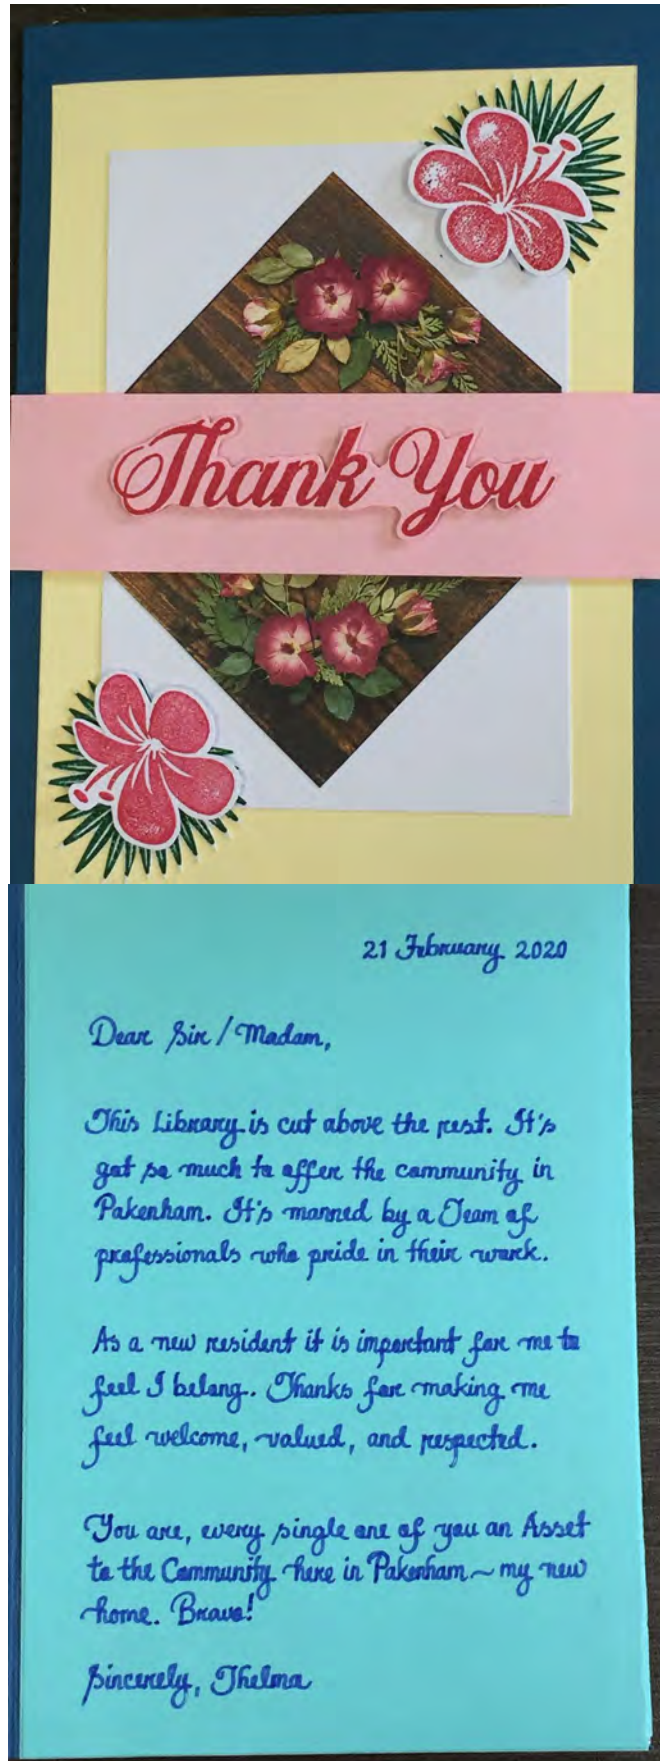 Thank You
21 February 2020
Dear Sir/Madam,
This Library is cut above the rest. It's
got so much to offer the community in
Pakenham. It's manned by a Team of
professionals who pride in their work.
As a new resident it is important for me to
feel I belong. Thanks for making me
feel welcome, valued, and respected.
You are, every single one of you an Asset
to the Community here in Pakenham ~ my new
home. Bravo!
Sincerely, Thelma